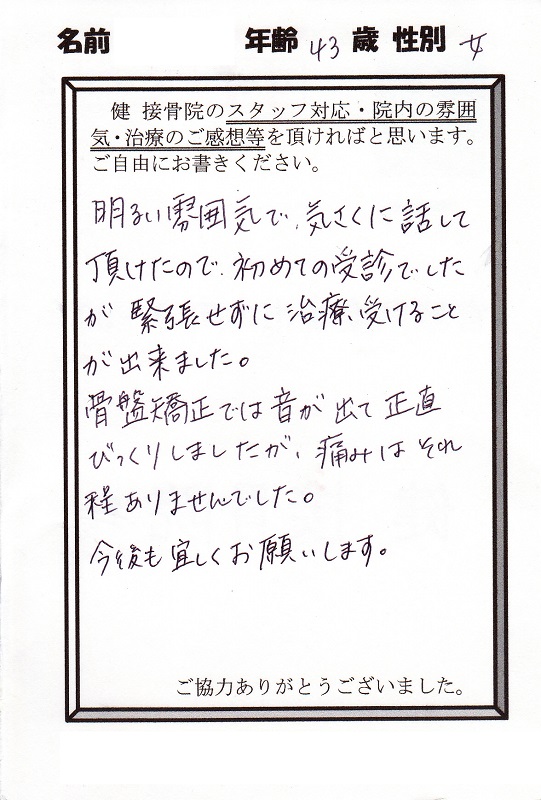 名前 年齢 43 歳 性別 女
健 接骨院のスタッフ対応・院内の雰囲
気・治療のご感想等を頂ければと思います。
ご自由にお書きください。
明るい雰囲気で、気さくに話して
頂けたので、初めての受診でした
が緊張せずに治療受けること
が出来ました。
骨盤矯正では音が出て正直
びっくりしましたが、痛みはそれ
程ありませんでした。
今後も宜しくお願いします。
ご協力ありがとうございました。